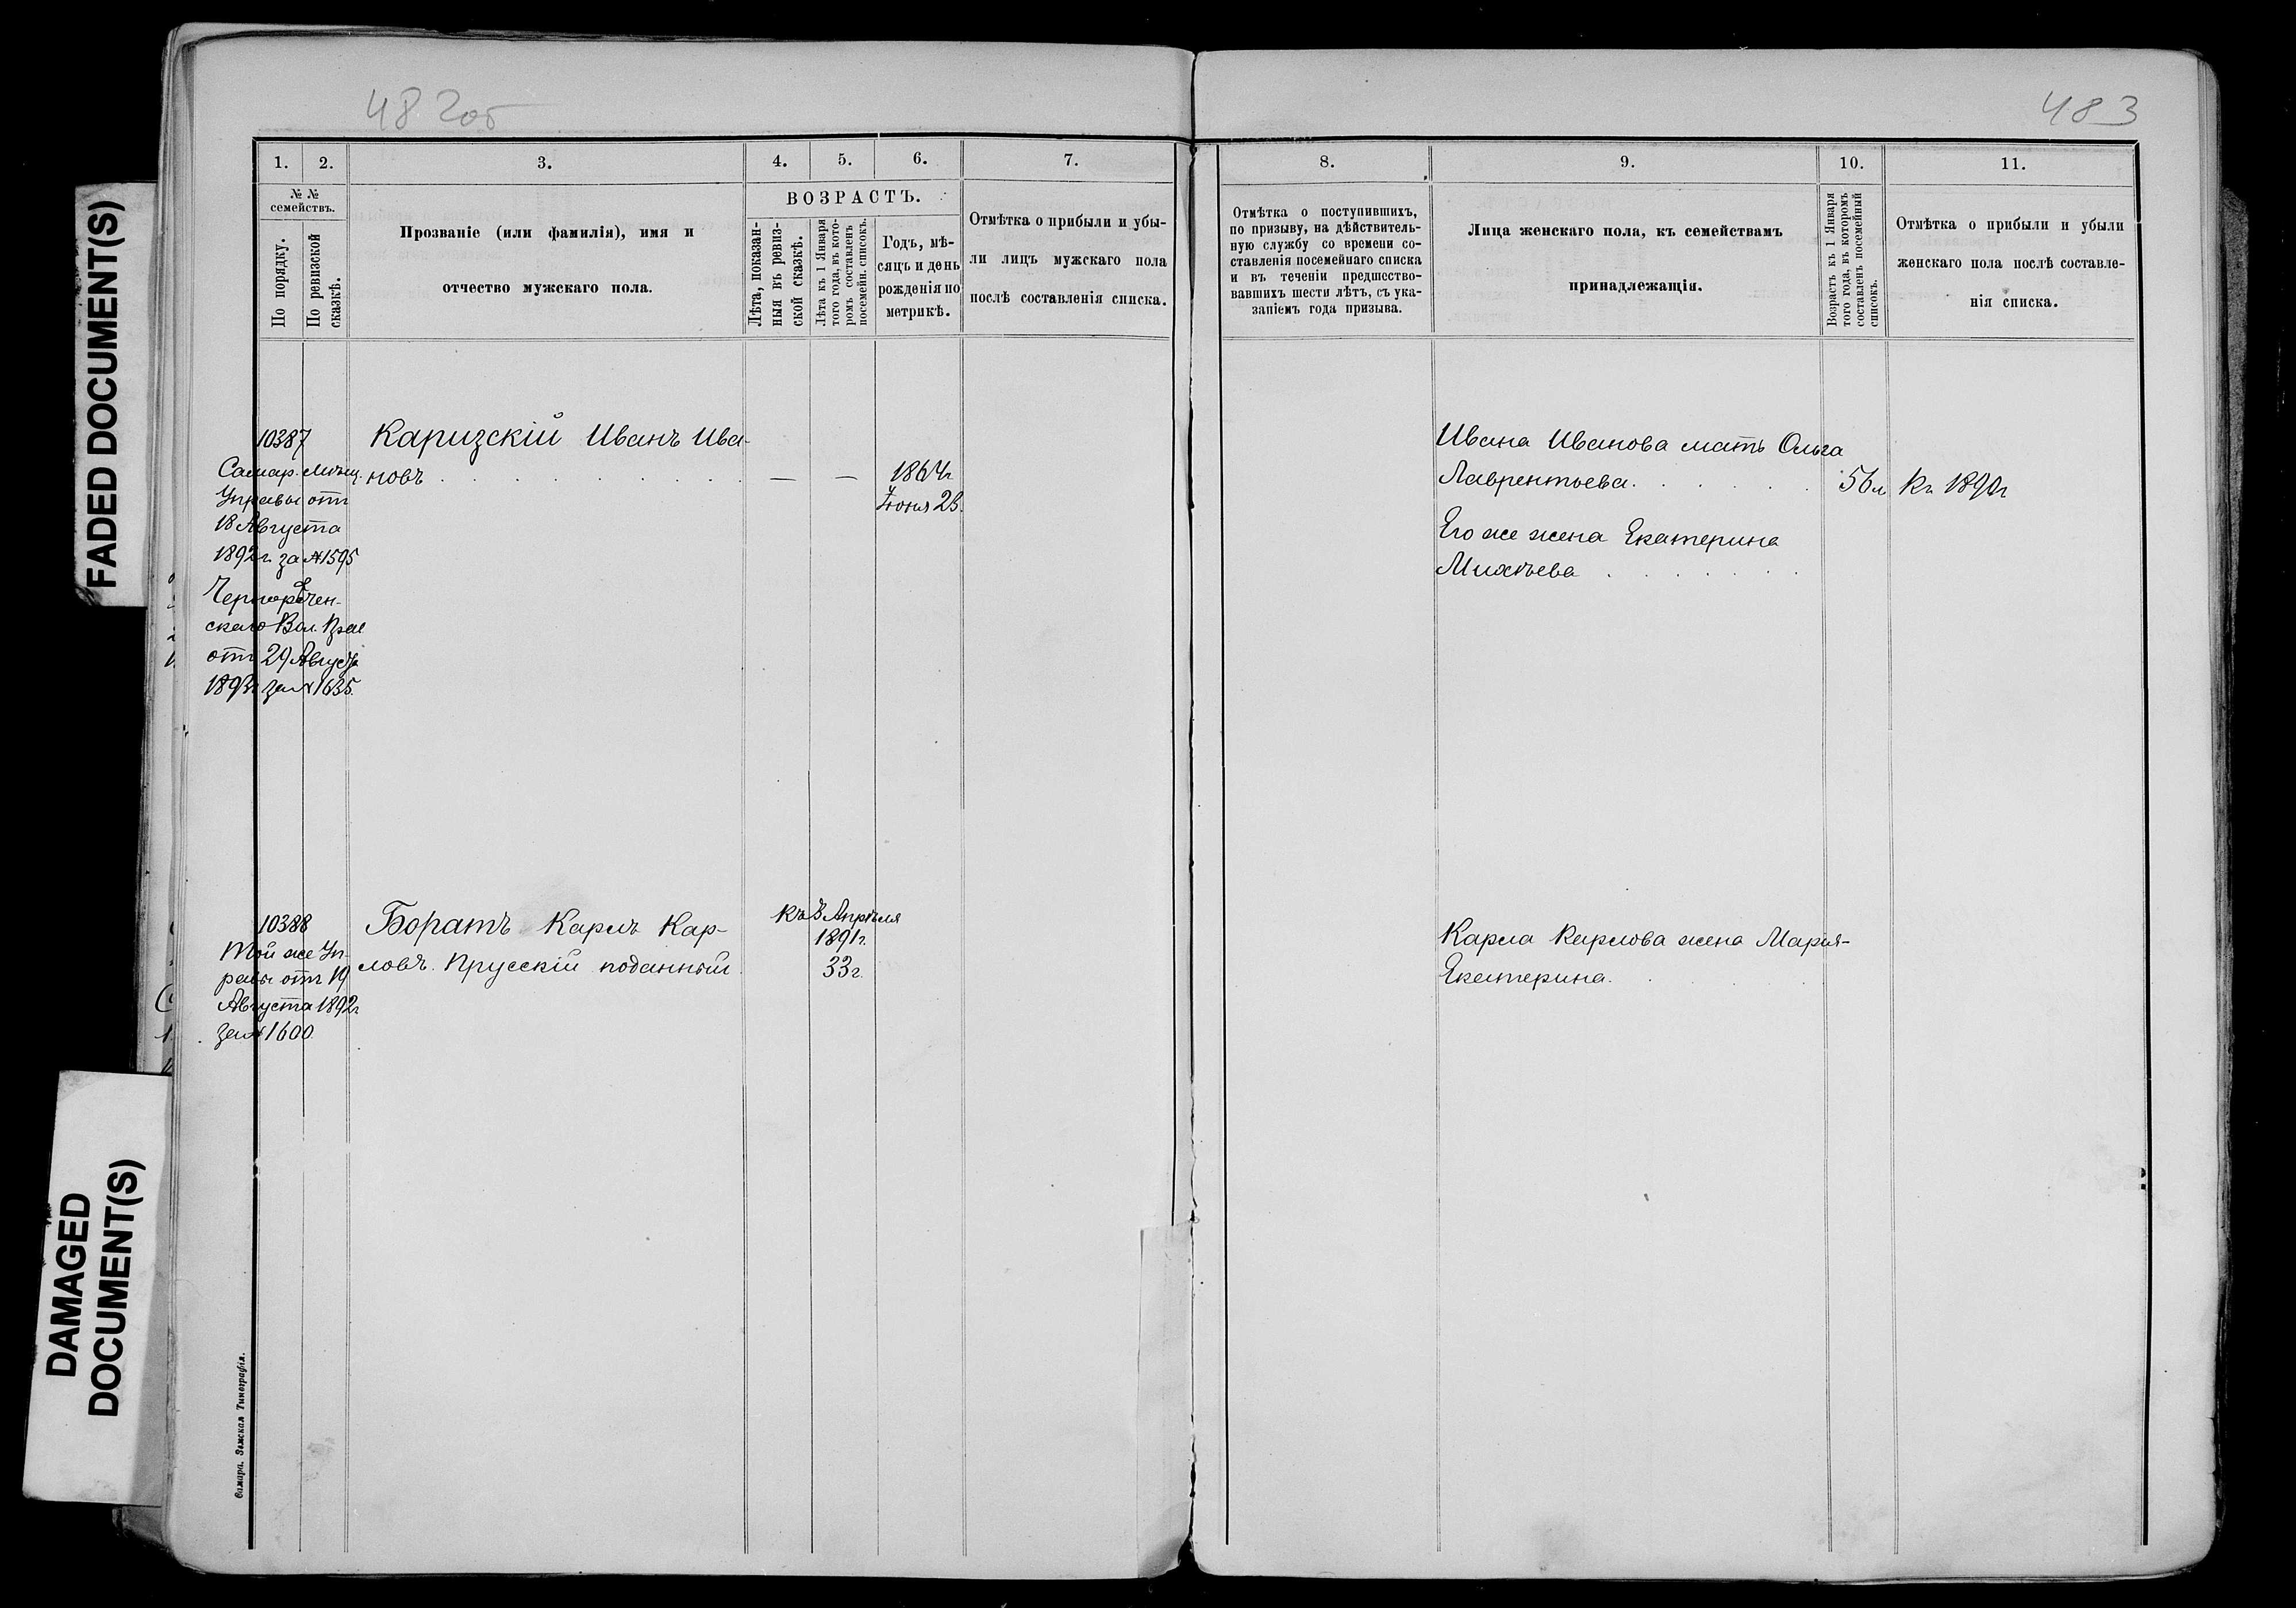 482об
483
FADED DOCUMENT(S)
DAMAGED
DOCUMENT(S)
1.
2.
3.
4.
5.
6.
7.
№ №
семействъ.
По порядку.
По ревизской
сказкѣ.
Прозваніе (или фамилія), имя и
отчество мужскаго пола.
ВОЗРАСТЪ.
Лѣта, показан-
ныя въ ревиз-
ской сказкѣ.
Лѣта къ 1 Января
того года, въ кото-
ромъ составленъ
посемейн. списокъ.
Годъ, мѣ-
сяцъ и день
рожденія по
метрикѣ.
Отмѣтка о прибыли и убы-
ли лицъ мужскаго пола
послѣ составленія списка.
8.
9.
10.
11.
Отмѣтка о поступившихъ,
по призыву, на дѣйствитель-
ную службу со времени со-
ставленія посемейнаго списка
и въ теченіи предшество-
вавшихъ шести лѣтъ, съ ука-
заніемъ года призыва.
Лица женскаго пола, къ семействамъ
принадлежащія.
Возрастъ къ 1 Января
того года, въ которомъ
составленъ посемейный
списокъ.
Отмѣтка о прибыли и убыли
женскаго пола послѣ составле-
нія списка.
10387
Самар. Мѣщ.
Управы отъ
18 Августа
1892г. за №1595
Чернорѣчен-
скаго Вол. Прав
отъ 29 Августа
за № 1635.
Каризскій Иванъ Ива-
новъ
— —
1864г
Іюня 23.
Ивана Иванова мать Ольга
Лаврентьева.
56л
Къ 1890г
Его же жена Екатерина
Михѣева
10388
Той же Уп-
равы отъ 19
Августа 1892г
за № 1600
Боратъ Карлъ Кар-
ловъ. Прусскій поданный
Апрѣля
1891г.
33г.
Карла Карлова жена Марія-
Екатерина.
Самара. Земская Типографія.